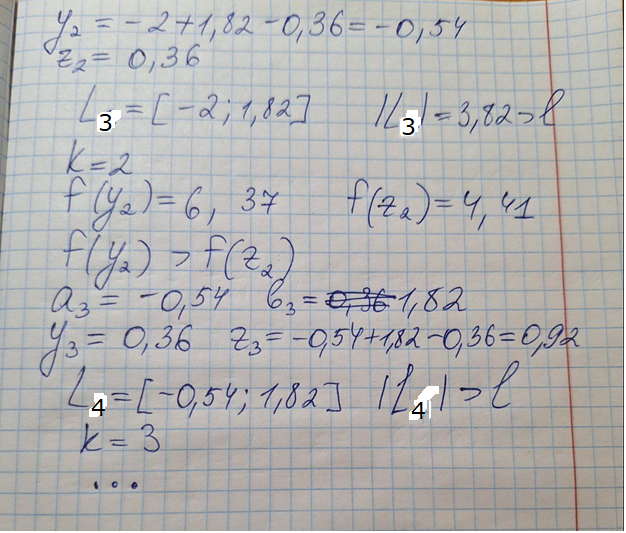 y₂ = -2+1,82-0,36=-0,54
z₂ = 0,36
L₃ = [-2; 1,82] |L₃| = 3,82 > l
k=2
f(y₂)=6, 37 f(z₂)=4,41
f(y₂) > f(z₂)
a₃ = -0,54 b₃ = 0,36 1,82
y₃ = 0,36 z₃ = -0,54+1,82-0,36=0,92
L₄ = [-0,54; 1,82] |L₄| > l
k = 3
...